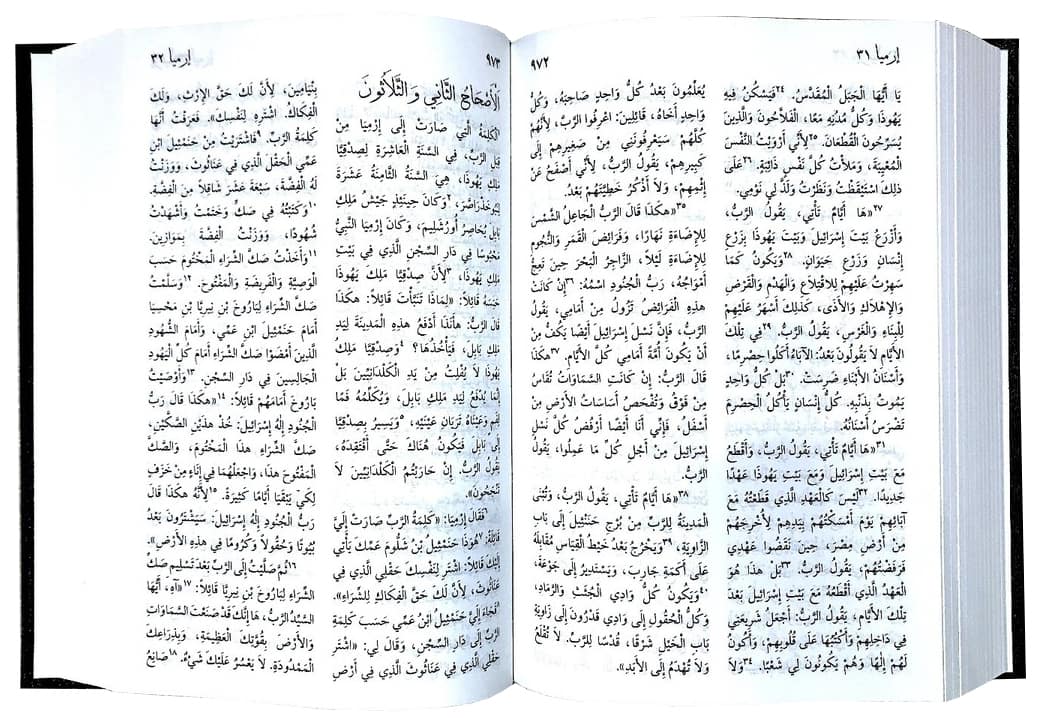 إرميا ٣١
٩٧٢
يَا أَيُّهَا الْجَبَلُ الْمُقَدَّسُ. ٢٤فَيَسْكُنُ فِيهِ
يَهُوذَا وَكُلُّ مُدُنِهِ مَعًا، الْفَلاَّحُونَ وَالَّذِينَ
يُسَرِّحُونَ الْقُطْعَانَ. ٢٥لأَنِّي أَرْوَيْتُ النَّفْسَ
الْمُعْيِيَةَ، وَمَلأْتُ كُلَّ نَفْسٍ ذَائِبَةٍ. ٢٦عَلَى
ذلِكَ اسْتَيْقَظْتُ وَنَظَرْتُ وَلَذَّ لِي نَوْمِي.
٢٧«هَا أَيَّامٌ تَأْتِي، يَقُولُ الرَّبُّ،
وَأَزْرَعُ بَيْتَ إِسْرَائِيلَ وَبَيْتَ يَهُوذَا بِزَرْعِ
إِنْسَانٍ وَزَرْعِ حَيَوَانٍ. ٢٨وَيَكُونُ كَمَا
سَهِرْتُ عَلَيْهِمْ لِلاقْتِلاَعِ وَالْهَدْمِ وَالْقَرْضِ
وَالإِهْلاَكِ وَالأَذَى، كَذلِكَ أَسْهَرُ عَلَيْهِمْ
لِلْبِنَاءِ وَالْغَرْسِ، يَقُولُ الرَّبُّ. ٢٩فِي تِلْكَ
الأَيَّامِ لاَ يَقُولُونَ بَعْدُ: الآبَاءُ أَكَلُوا حِصْرِمًا،
وَأَسْنَانُ الأَبْنَاءِ ضَرِسَتْ. ٣٠بَلْ كُلُّ وَاحِدٍ
يَمُوتُ بِذَنْبِهِ. كُلُّ إِنْسَانٍ يَأْكُلُ الْحِصْرِمَ
تَضْرَسُ أَسْنَانُهُ.
٣١«هَا أَيَّامٌ تَأْتِي، يَقُولُ الرَّبُّ، وَأَقْطَعُ
مَعَ بَيْتِ إِسْرَائِيلَ وَمَعَ بَيْتِ يَهُوذَا عَهْدًا
جَدِيدًا. ٣٢لَيْسَ كَالْعَهْدِ الَّذِي قَطَعْتُهُ مَعَ
آبَائِهِمْ يَوْمَ أَمْسَكْتُهُمْ بِيَدِهِمْ لأُخْرِجَهُمْ
مِنْ أَرْضِ مِصْرَ، حِينَ نَقَضُوا عَهْدِي
فَرَفَضْتُهُمْ، يَقُولُ الرَّبُّ. ٣٣بَلْ هذَا هُوَ
الْعَهْدُ الَّذِي أَقْطَعُهُ مَعَ بَيْتِ إِسْرَائِيلَ بَعْدَ
تِلْكَ الأَيَّامِ، يَقُولُ الرَّبُّ: أَجْعَلُ شَرِيعَتِي
فِي دَاخِلِهِمْ وَأَكْتُبُهَا عَلَى قُلُوبِهِمْ، وَأَكُونُ
لَهُمْ إِلهًا وَهُمْ يَكُونُونَ لِي شَعْبًا. ٣٤وَلاَ
يُعَلِّمُونَ بَعْدُ كُلُّ وَاحِدٍ صَاحِبَهُ، وَكُلُّ
وَاحِدٍ أَخَاهُ، قَائِلِينَ: اعْرِفُوا الرَّبَّ، لأَنَّهُمْ
كُلَّهُمْ سَيَعْرِفُونَنِي مِنْ صَغِيرِهِمْ إِلَى
كَبِيرِهِمْ، يَقُولُ الرَّبُّ، لأَنِّي أَصْفَحُ عَنْ
إِثْمِهِمْ، وَلاَ أَذْكُرُ خَطِيَّتَهُمْ بَعْدُ.
٣٥«هكَذَا قَالَ الرَّبُّ الْجَاعِلُ الشَّمْسَ
لِلإِضَاءَةِ نَهَارًا، وَفَرَائِضَ الْقَمَرِ وَالنُّجُومِ
لِلإِضَاءَةِ لَيْلاً، الزَّاجِرُ الْبَحْرَ حِينَ تَعِجُّ
أَمْوَاجُهُ، رَبُّ الْجُنُودِ اسْمُهُ: ٣٦إِنْ كَانَتْ
هذِهِ الْفَرَائِضُ تَزُولُ مِنْ أَمَامِي، يَقُولُ
الرَّبُّ، فَإِنَّ نَسْلَ إِسْرَائِيلَ أَيْضًا يَكُفُّ مِنْ
أَنْ يَكُونَ أُمَّةً أَمَامِي كُلَّ الأَيَّامِ. ٣٧هكَذَا
قَالَ الرَّبُّ: إِنْ كَانَتِ السَّمَاوَاتُ تُقَاسُ
مِنْ فَوْقُ وَتُفْحَصُ أَسَاسَاتُ الأَرْضِ مِنْ
أَسْفَلُ، فَإِنِّي أَنَا أَيْضًا أَرْفُضُ كُلَّ نَسْلِ
إِسْرَائِيلَ مِنْ أَجْلِ كُلِّ مَا عَمِلُوا، يَقُولُ
الرَّبُّ.
٣٨«هَا أَيَّامٌ تَأْتِي، يَقُولُ الرَّبُّ، وَتُبْنَى
الْمَدِينَةُ لِلرَّبِّ مِنْ بُرْجِ حَنَنْئِيلَ إِلَى بَابِ
الزَّاوِيَةِ، ٣٩وَيَخْرُجُ بَعْدُ خَيْطُ الْقِيَاسِ مُقَابِلَهُ
عَلَى أَكَمَةِ جَارِبَ، وَيَسْتَدِيرُ إِلَى جَوْعَةَ،
٤٠وَيَكُونُ كُلُّ وَادِي الْجُثَثِ وَالرَّمَادِ،
وَكُلُّ الْحُقُولِ إِلَى وَادِي قَدْرُونَ إِلَى زَاوِيَةِ
بَابِ الْخَيْلِ شَرْقًا، قُدْسًا لِلرَّبِّ. لاَ تُقْلَعُ
وَلاَ تُهْدَمُ إِلَى الأَبَدِ».
٩٧٣
إرميا ٣٢
اَلأَصْحَاحُ الثَّانِي وَالثَّلاَثُونَ
اَلْكَلِمَةُ الَّتِي صَارَتْ إِلَى إِرْمِيَا مِنْ
قِبَلِ الرَّبِّ، فِي السَّنَةِ الْعَاشِرَةِ لِصِدْقِيَّا
مَلِكِ يَهُوذَا، هِيَ السَّنَةُ الثَّامِنَةُ عَشَرَةَ
لِنَبُوخَذْرَاصَّرَ، ٢وَكَانَ حِينَئِذٍ جَيْشُ مَلِكِ
بَابِلَ يُحَاصِرُ أُورُشَلِيمَ، وَكَانَ إِرْمِيَا النَّبِيُّ
مَحْبُوسًا فِي دَارِ السِّجْنِ الَّذِي فِي بَيْتِ
مَلِكِ يَهُوذَا، ٣لأَنَّ صِدْقِيَّا مَلِكَ يَهُوذَا
حَبَسَهُ قَائِلاً: «لِمَاذَا تَنَبَّأْتَ قَائِلاً: هكَذَا
قَالَ الرَّبُّ: هأَنَذَا أَدْفَعُ هذِهِ الْمَدِينَةَ لِيَدِ
مَلِكِ بَابِلَ، فَيَأْخُذُهَا؟ ٤وَصِدْقِيَّا مَلِكُ
يَهُوذَا لاَ يُفْلِتُ مِنْ يَدِ الْكَلْدَانِيِّينَ بَلْ
إِنَّمَا يُدْفَعُ لِيَدِ مَلِكِ بَابِلَ، وَيُكَلِّمُهُ فَمًا
لِفَمٍ وَعَيْنَاهُ تَرَيَانِ عَيْنَيْهِ، ٥وَيَسِيرُ بِصِدْقِيَّا
إِلَى بَابِلَ فَيَكُونُ هُنَاكَ حَتَّى أَفْتَقِدَهُ،
يَقُولُ الرَّبُّ. إِنْ حَارَبْتُمُ الْكَلْدَانِيِّينَ لاَ
تَنْجَحُونَ».
٦فَقَالَ إِرْمِيَا: «كَلِمَةُ الرَّبِّ صَارَتْ إِلَيَّ
قَائِلَةً: ٧هُوَذَا حَنَمْئِيلُ بْنُ شَلُّومَ عَمِّكَ يَأْتِي
إِلَيْكَ قَائِلاً: اشْتَرِ لِنَفْسِكَ حَقْلِي الَّذِي فِي
عَنَاثُوثَ، لأَنَّ لَكَ حَقَّ الْفِكَاكِ لِلشِّرَاءِ».
٨فَجَاءَ إِلَيَّ حَنَمْئِيلُ ابْنُ عَمِّي حَسَبَ كَلِمَةِ
الرَّبِّ إِلَى دَارِ السِّجْنِ، وَقَالَ لِي: «اشْتَرِ
حَقْلِي الَّذِي فِي عَنَاثُوثَ الَّذِي فِي أَرْضِ
بِنْيَامِينَ، لأَنَّ لَكَ حَقَّ الإِرْثِ، وَلَكَ
الْفِكَاكُ. اشْتَرِهِ لِنَفْسِكَ». فَعَرَفْتُ أَنَّهَا
كَلِمَةُ الرَّبِّ. ٩فَاشْتَرَيْتُ مِنْ حَنَمْئِيلَ ابْنِ
عَمِّي الْحَقْلَ الَّذِي فِي عَنَاثُوثَ، وَوَزَنْتُ
لَهُ الْفِضَّةَ، سَبْعَةَ عَشَرَ شَاقِلاً مِنَ الْفِضَّةِ.
١٠وَكَتَبْتُهُ فِي صَكٍّ وَخَتَمْتُ وَأَشْهَدْتُ
شُهُودًا، وَوَزَنْتُ الْفِضَّةَ بِمَوَازِينَ.
١١وَأَخَذْتُ صَكَّ الشِّرَاءِ الْمَخْتُومَ حَسَبَ
الْوَصِيَّةِ وَالْفَرِيضَةِ وَالْمَفْتُوحَ. ١٢وَسَلَّمْتُ
صَكَّ الشِّرَاءِ لِبَارُوخَ بْنِ نِيرِيَّا بْنِ مَحْسِيَا
أَمَامَ حَنَمْئِيلَ ابْنِ عَمِّي، وَأَمَامَ الشُّهُودِ
الَّذِينَ أَمْضَوْا صَكَّ الشِّرَاءِ أَمَامَ كُلِّ الْيَهُودِ
الْجَالِسِينَ فِي دَارِ السِّجْنِ. ١٣وَأَوْصَيْتُ
بَارُوخَ أَمَامَهُمْ قَائِلاً: ١٤«هكَذَا قَالَ رَبُّ
الْجُنُودِ إِلهُ إِسْرَائِيلَ: خُذْ هذَيْنِ الصَّكَّيْنِ،
صَكَّ الشِّرَاءِ هذَا الْمَخْتُومَ، وَالصَّكَّ
الْمَفْتُوحَ هذَا، وَاجْعَلْهُمَا فِي إِنَاءٍ مِنْ خَزَفٍ
لِكَيْ يَبْقَيَا أَيَّامًا كَثِيرَةً. ١٥لأَنَّهُ هكَذَا قَالَ
رَبُّ الْجُنُودِ إِلهُ إِسْرَائِيلَ: سَيَشْتَرُونَ بَعْدُ
بُيُوتًا وَحُقُولاً وَكُرُومًا فِي هذِهِ الأَرْضِ».
١٦ثُمَّ صَلَّيْتُ إِلَى الرَّبِّ بَعْدَ تَسْلِيمِ صَكِّ
الشِّرَاءِ لِبَارُوخَ بْنِ نِيرِيَّا قَائِلاً: ١٧«آهِ، أَيُّهَا
السَّيِّدُ الرَّبُّ، هَا إِنَّكَ قَدْ صَنَعْتَ السَّمَاوَاتِ
وَالأَرْضَ بِقُوَّتِكَ الْعَظِيمَةِ، وَبِذِرَاعِكَ
الْمَمْدُودَةِ. لاَ يَعْسُرُ عَلَيْكَ شَيْءٌ. ١٨صَانِعُ